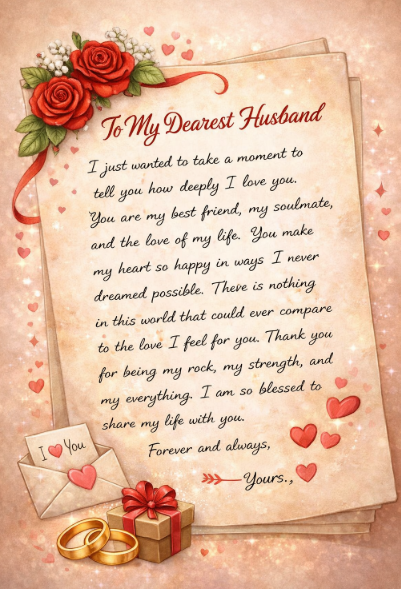 To My Dearest Husband
I just wanted to take a moment to
tell you how deeply I love you.
You are my best friend, my soulmate,
and the love of my life. You make
my heart so happy in ways I never
dreamed possible. There is nothing
in this world that could ever compare
to the love I feel for you. Thank you
for being my rock, my strength, and
my everything. I am so blessed to
share my life with you.
Forever and always,
Yours.,
I ❤ You